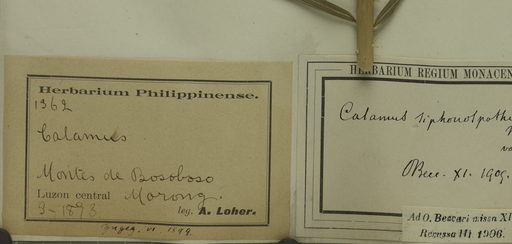 Herbarium Philippinense.
1362
Calamus
Montes de Bosoboso
Luzon central Morong.
3-1893 leg. A. Loher.
HERBARIUM REGIUM MONACEN
Calamus siphonospathu
va
O Becc. XI. 1905.
Ad O. Beccari missa XI
Recessa III. 1906.